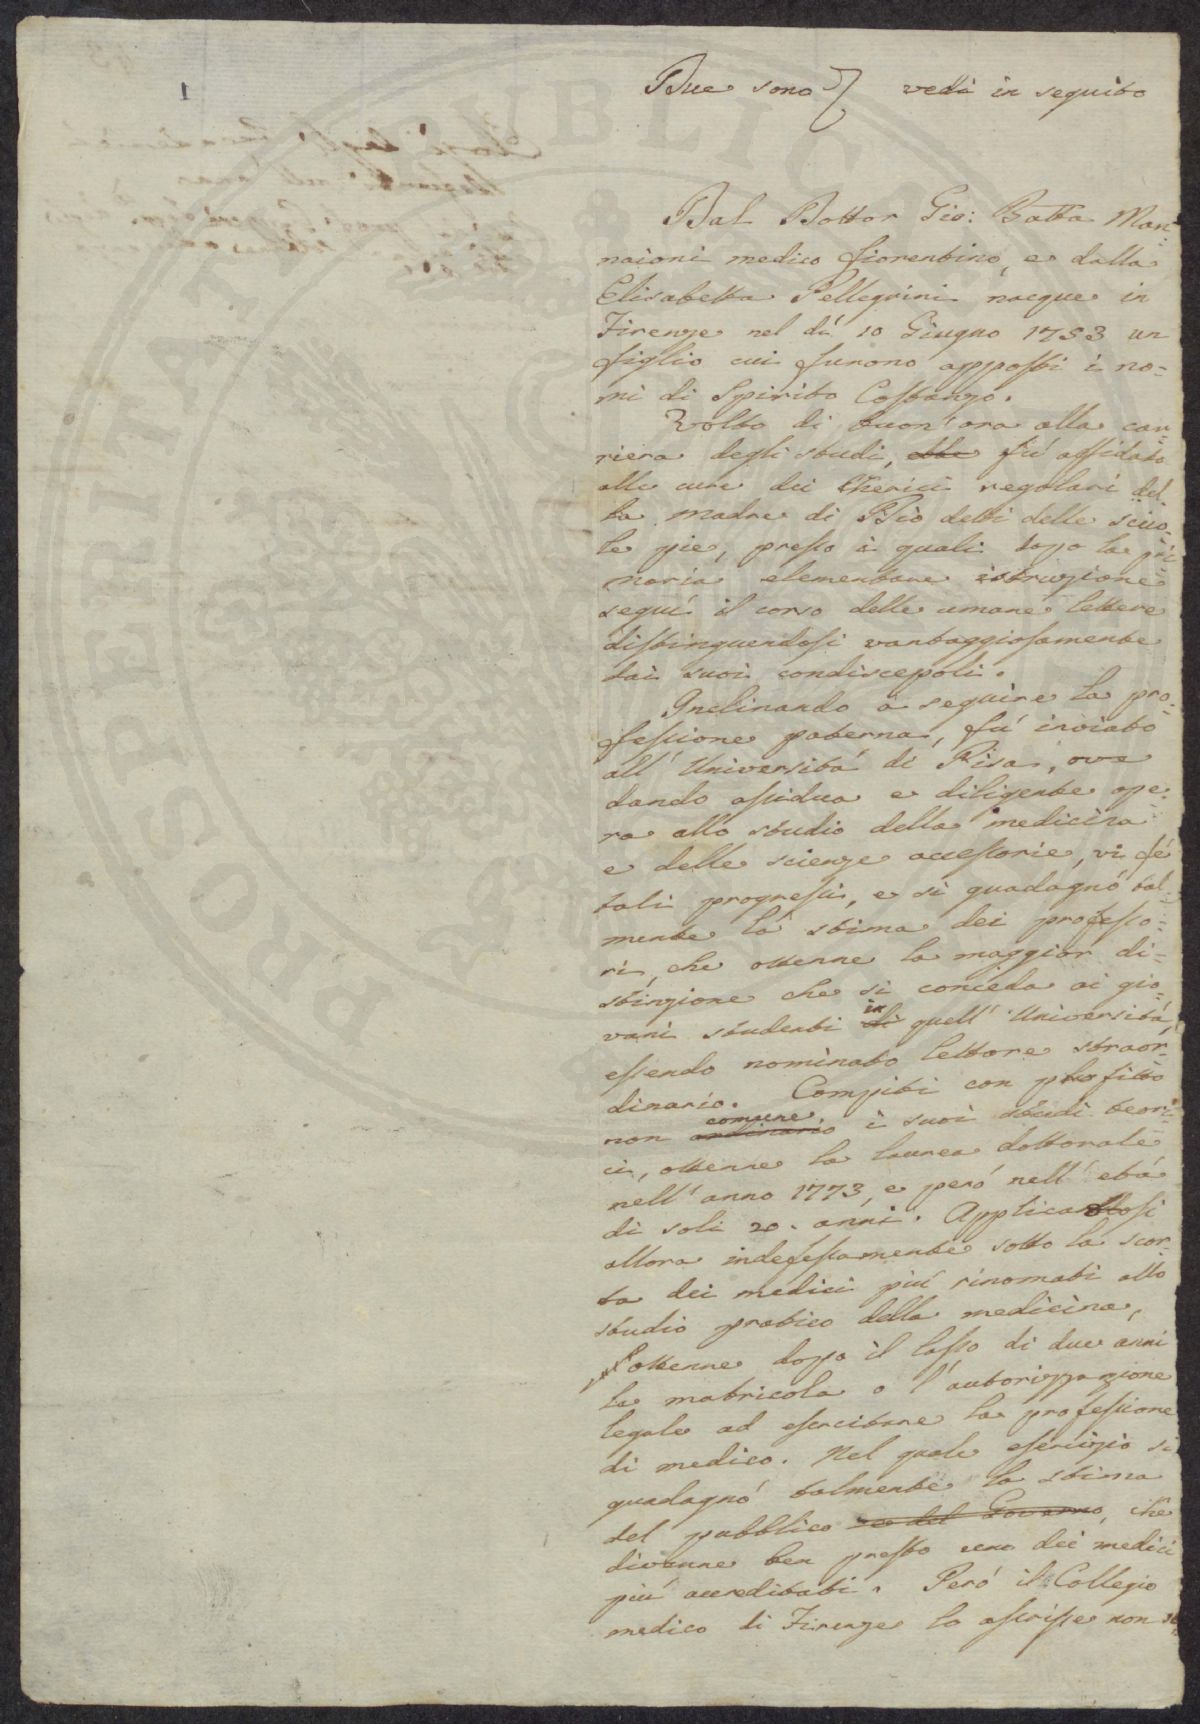 1
Due sono vedi in seguito
Dal Dottor Gio: Batta Man=
naioni medico fiorentino, e dalla
Elisabetta Pellegrini nacque in
Firenze nel dí 10 Giugno 1753 un
figlio cui furono apposti i no=
mi di Spirito Costanzo.
Volto di buon'ora alla car=
riera degli studi, ebbe fú affidato
alle cure dei Cherici regolari del=
la Madre di Dio detti delle scuo=
le pie, presso i quali dopo la pri=
maria elementare istruzione
seguí il corso delle umane lettere
distinguendosi vantaggiosamente
dai suoi condiscepoli.
Inclinando a seguire la pro=
fessione paterna, fú inviato
all'Universitá di Pisa, ove
dando assidua e diligente ope=
ra allo studio della medicina
e delle scienze accessorie, vi fé
tali progressi, e si guadagnó tal=
mente la stima dei professo=
ri, che ottenne la maggior di=
stinzione che si conceda ai gio=
vani studenti di in quell'Universitá,
essendo nominato lettore straor=
dinario. Compiti con profitto
non ordinario comune i suoi studi teori=
ci, ottenne la laurea dottorale
nell'anno 1773, e peró nell'etá
di soli 20. anni. Applicatosi
allora indefessamente sotto la scor=
ta dei medici piú rinomati allo
studio pratico della medicina,
ottenne dopo il lasso di due anni
la matricola o l'autorizzazione
legale ad esercitare la professione
di medico. Nel quale esercizio si
guadagnó talmente la stima
del pubblico e del Governo, che
divenne ben presto uno dei medici
piú accreditati. Peró il Collegio
medico di Firenze lo ascrisse non
PROSPERITATI PUBLICAE